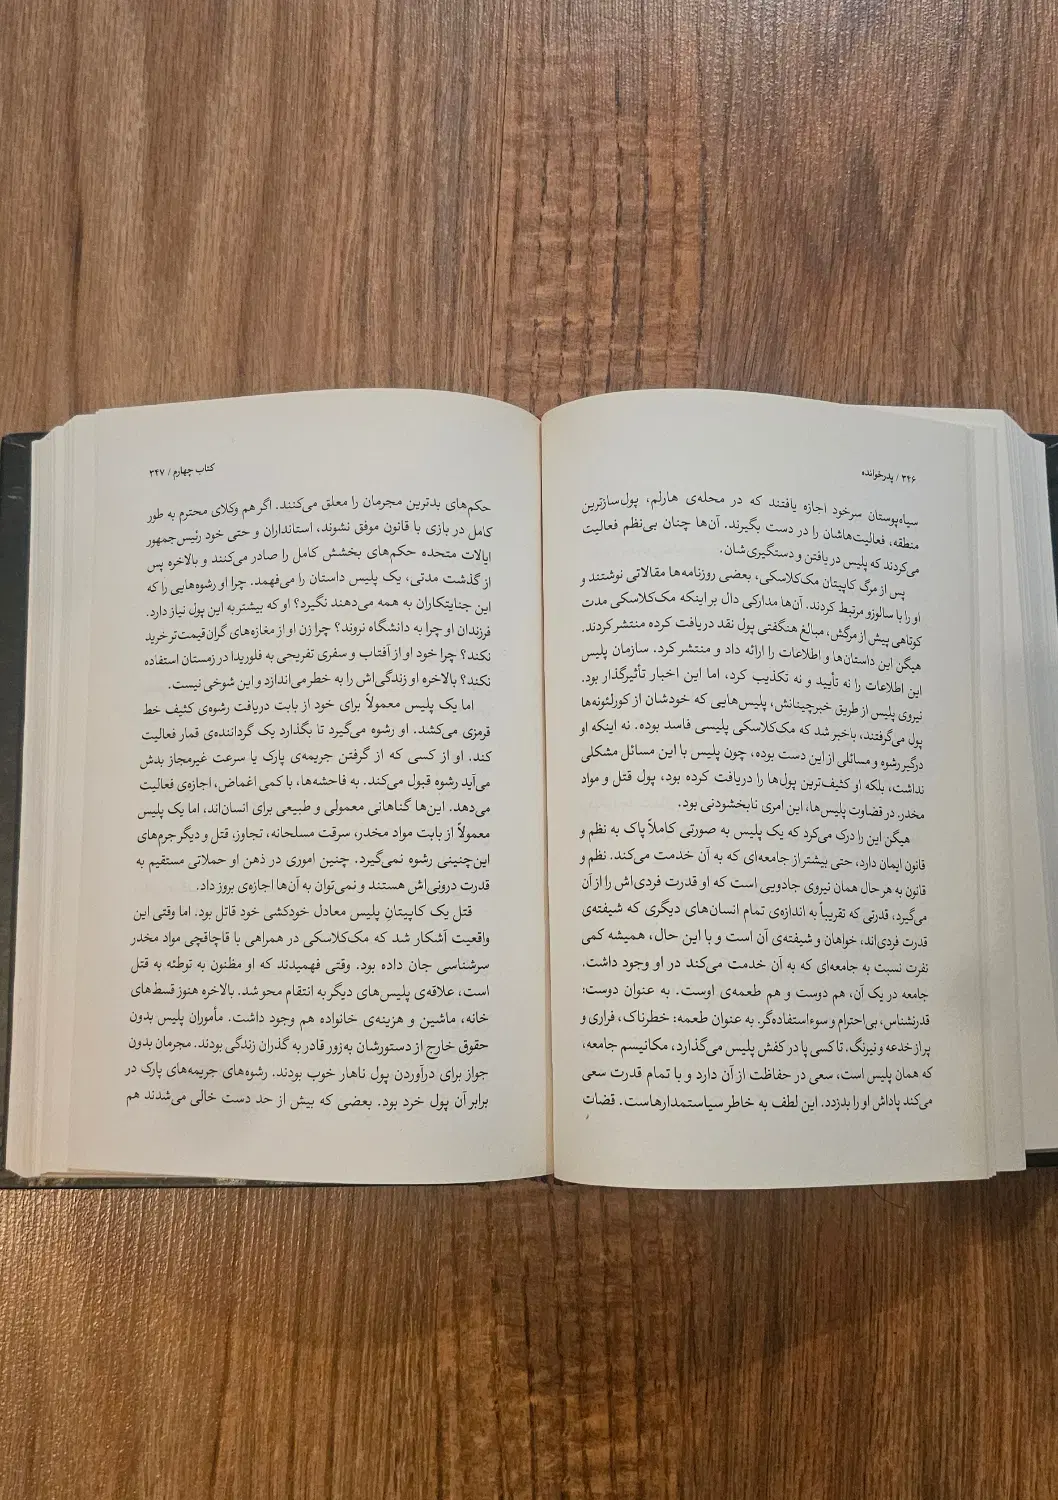 ۳۴۶ / پدرخوانده
سیاه‌پوستان سرخود اجازه یافتند که در محله‌ی هارلم، پول‌سازترین
منطقه، فعالیت‌هاشان را در دست بگیرند. آن‌ها چنان بی‌نظم فعالیت
می‌کردند که پلیس در یافتن و دستگیری‌شان.
پس از مرگ کاپیتان مک‌کلاسکی، بعضی روزنامه‌ها مقالاتی نوشتند و
او را با سالوزو مرتبط کردند. آن‌ها مدارکی دال بر اینکه مک‌کلاسکی مدت
کوتاهی پیش از مرگش، مبالغ هنگفتی پول نقد دریافت کرده منتشر کردند.
هیگن این داستان‌ها و اطلاعات را ارائه داد و منتشر کرد. سازمان پلیس
این اطلاعات را نه تأیید و نه تکذیب کرد، اما این اخبار تأثیرگذار بود.
نیروی پلیس از طریق خبرچینانش، پلیس‌هایی که خودشان از کورلئونه‌ها
پول می‌گرفتند، باخبر شد که مک‌کلاسکی پلیسی فاسد بوده. نه اینکه او
درگیر رشوه و مسائلی از این دست بوده، چون پلیس با این مسائل مشکلی
نداشت، بلکه او کثیف‌ترین پول‌ها را دریافت کرده بود، پول قتل و مواد
مخدر. در قضاوت پلیس‌ها، این امری نابخشودنی بود.
هیگن این را درک می‌کرد که یک پلیس به صورتی کاملاً پاک به نظم و
قانون ایمان دارد، حتی بیشتر از جامعه‌ای که به آن خدمت می‌کند. نظم و
قانون به هر حال همان نیروی جادویی است که او قدرت فردی‌اش را از آن
می‌گیرد، قدرتی که تقریباً به اندازه‌ی تمام انسان‌های دیگری که شیفته‌ی
قدرت فردی‌اند، خواهان و شیفته‌ی آن است و با این حال، همیشه کمی
نفرت نسبت به جامعه‌ای که به آن خدمت می‌کند در او وجود داشت.
جامعه در یک آن، هم دوست و هم طعمه‌ی اوست. به عنوان دوست:
قدرنشناس، بی‌احترام و سوءاستفاده‌گر. به عنوان طعمه: خطرناک، فراری و
پر از خدعه و نیرنگ. تا کسی پا در کفش پلیس می‌گذارد، مکانیسم جامعه،
که همان پلیس است، سعی در حفاظت از آن دارد و با تمام قدرت سعی
می‌کند پاداش او را بدزدد. این لطف به خاطر سیاستمدارهاست. قضات
کتاب چهارم / ۳۴۷
حکم‌های بدترین مجرمان را معلق می‌کنند. اگر هم وکلای محترم به طور
کامل در بازی با قانون موفق نشوند، استانداران و حتی خود رئیس‌جمهور
ایالات متحده حکم‌های بخشش کامل را صادر می‌کنند و بالاخره پس
از گذشت مدتی، یک پلیس داستان را می‌فهمد. چرا او رشوه‌هایی را که
این جنایتکاران به همه می‌دهند نگیرد؟ او که بیشتر به این پول نیاز دارد.
فرزندان او چرا به دانشگاه نروند؟ چرا زن او از مغازه‌های گران‌قیمت‌تر خرید
نکند؟ چرا خود او از آفتاب و سفری تفریحی به فلوریدا در زمستان استفاده
نکند؟ بالاخره او زندگی‌اش را به خطر می‌اندازد و این شوخی نیست.
اما یک پلیس معمولاً برای خود از بابت دریافت رشوه‌ی کثیف خط
قرمزی می‌کشد. او رشوه می‌گیرد تا بگذارد یک گرداننده‌ی قمار فعالیت
کند. او از کسی که از گرفتن جریمه‌ی پارک یا سرعت غیرمجاز بدش
می‌آید رشوه قبول می‌کند. به فاحشه‌ها، با کمی اغماض، اجازه‌ی فعالیت
می‌دهد. این‌ها گناهانی معمولی و طبیعی برای انسان‌اند، اما یک پلیس
معمولاً از بابت مواد مخدر، سرقت مسلحانه، تجاوز، قتل و دیگر جرم‌های
این‌چنینی رشوه نمی‌گیرد. چنین اموری در ذهن او حملاتی مستقیم به
قدرت درونی‌اش هستند و نمی‌توان به آن‌ها اجازه‌ی بروز داد.
قتل یک کاپیتانِ پلیس معادل خودکشی خود قاتل بود. اما وقتی این
واقعیت آشکار شد که مک‌کلاسکی در همراهی با قاچاقچی مواد مخدر
سرشناسی جان داده بود. وقتی فهمیدند که او مظنون به توطئه به قتل
است، علاقه‌ی پلیس‌های دیگر به انتقام محو شد. بالاخره هنوز قسط‌های
خانه، ماشین و هزینه‌ی خانواده هم وجود داشت. مأموران پلیس بدون
حقوق خارج از دستورشان به‌زور قادر به گذران زندگی بودند. مجرمان بدون
جواز برای درآوردن پول ناهار خوب بودند. رشوه‌های جریمه‌های پارک در
برابر آن پول خرد بود. بعضی که بیش از حد دست خالی می‌شدند هم